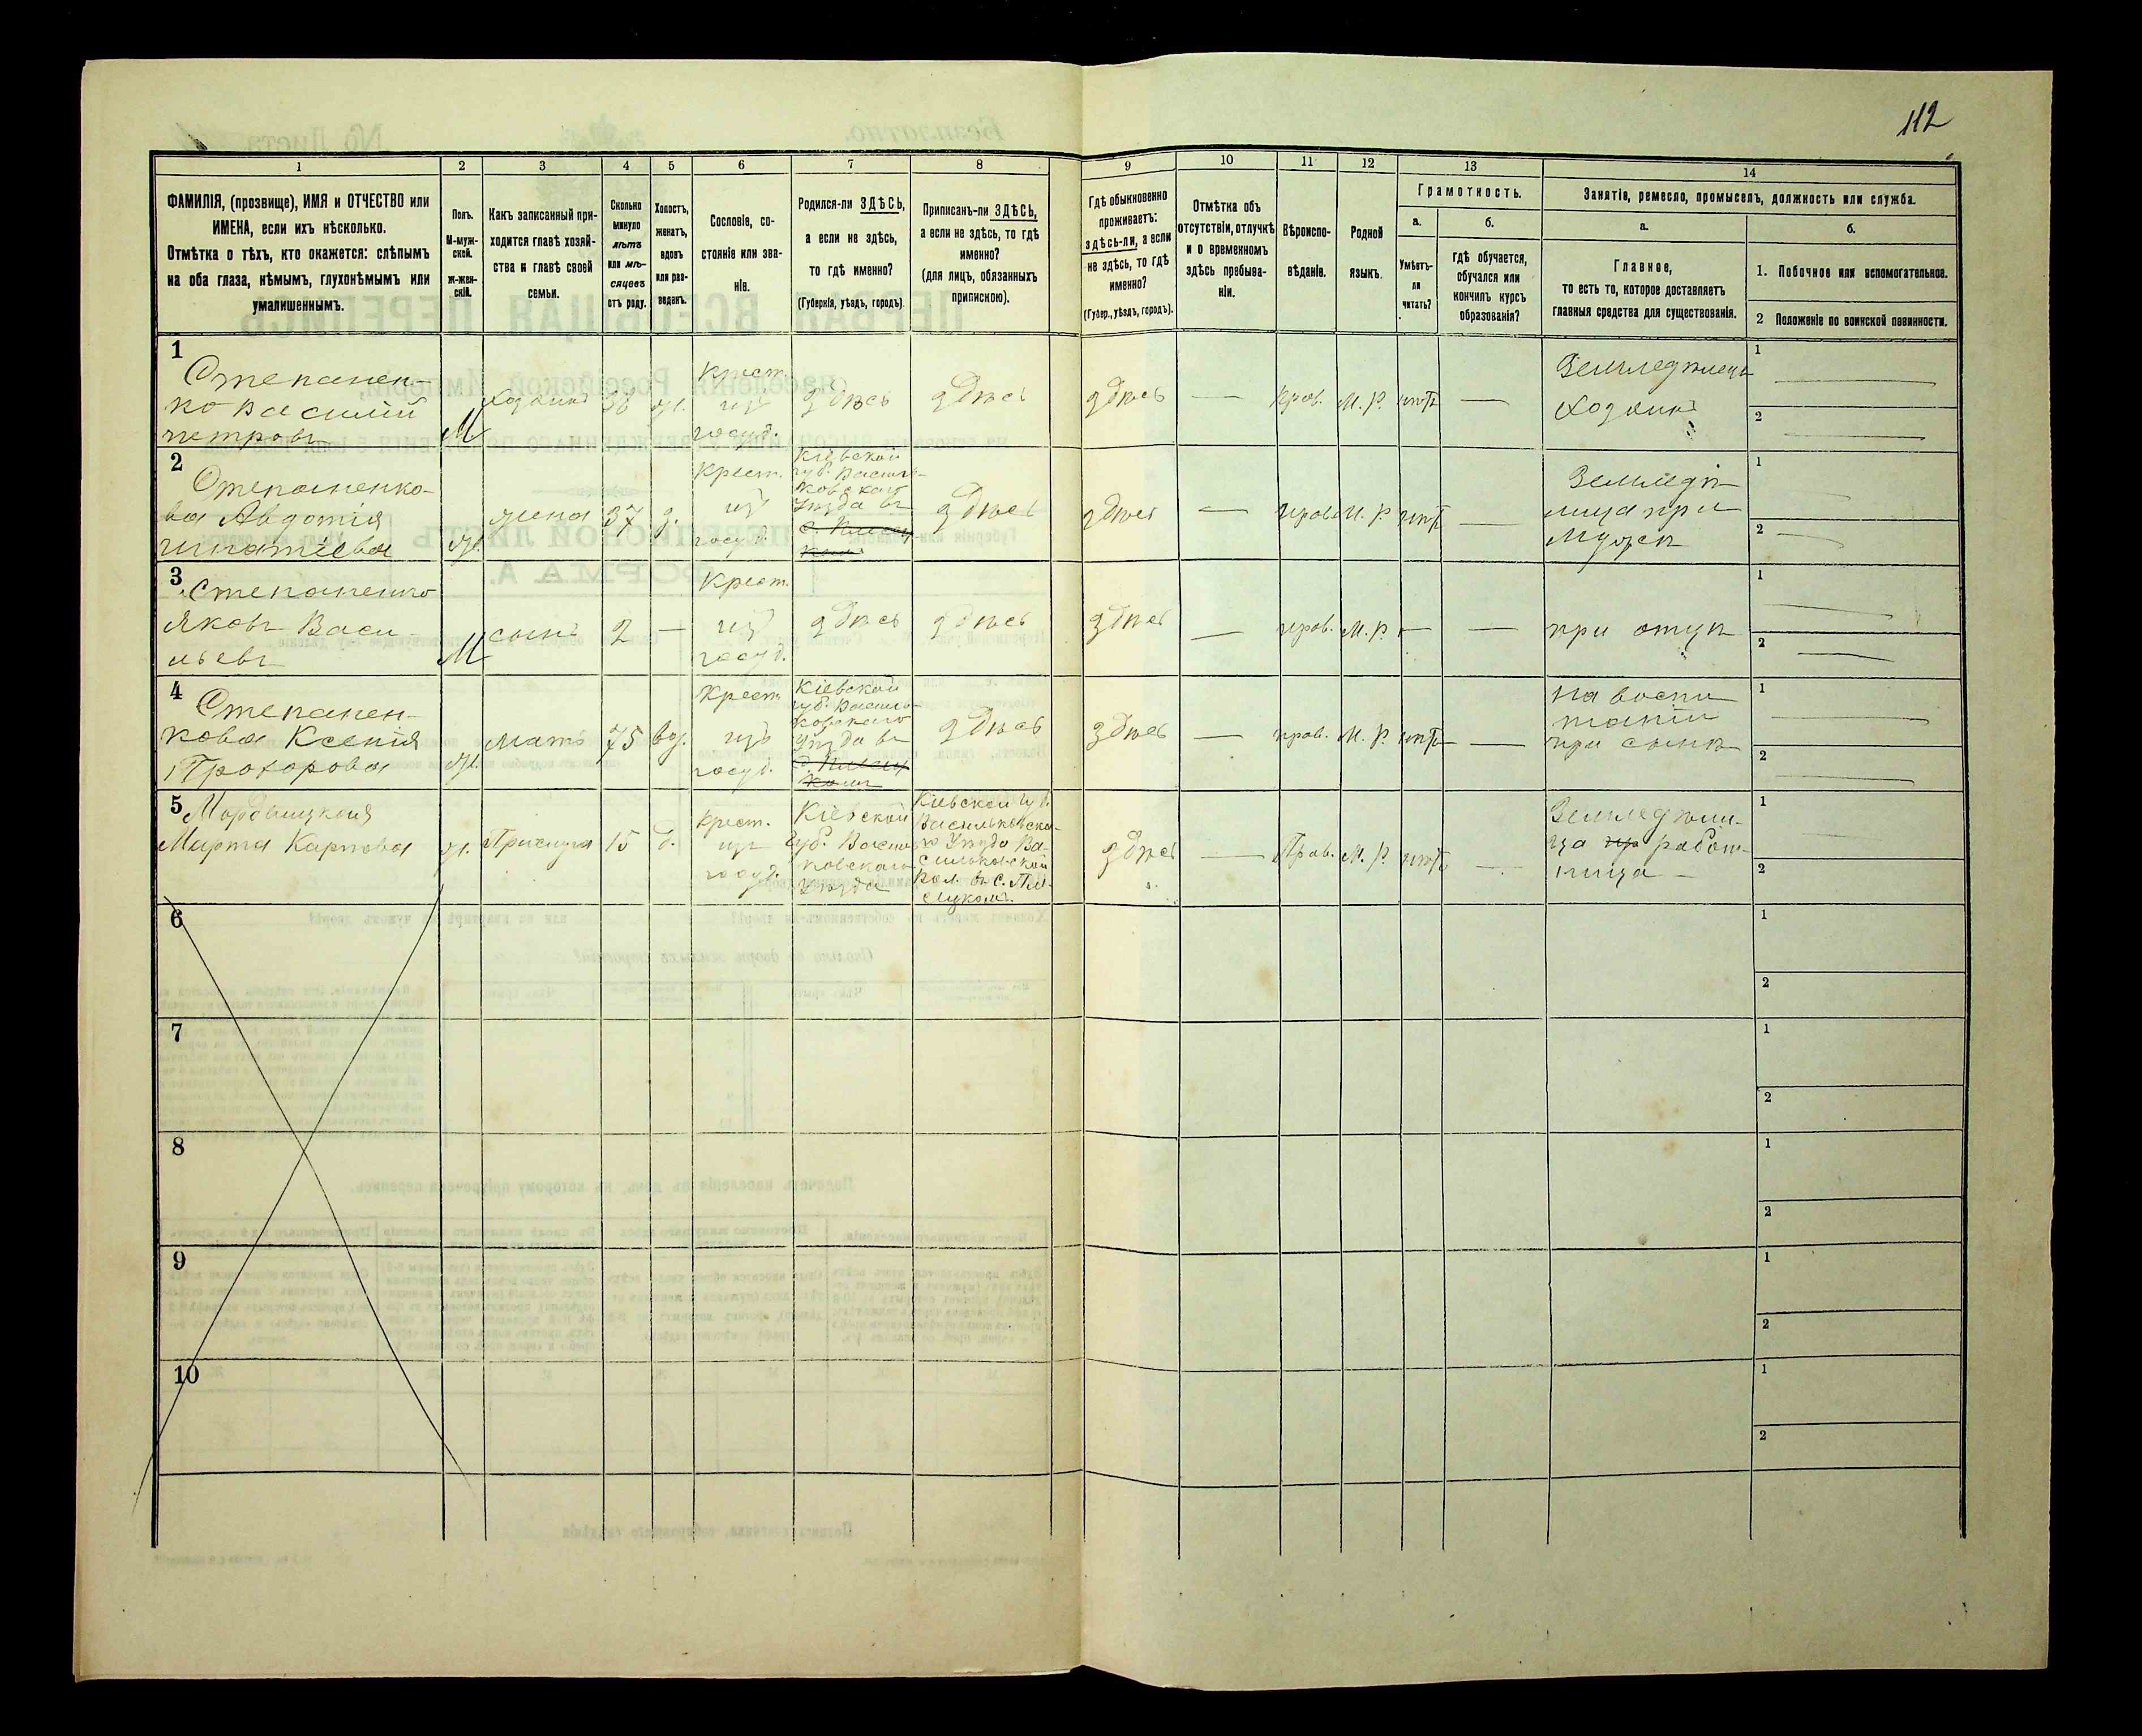 112
1
2
3
4
5
6
7
8
9
10
11
12
13
14
ФАМИЛІЯ, (прозвище), ИМЯ и ОТЧЕСТВО или
ИМЕНА, если ихъ нѣсколько.
Отмѣтка о тѣхъ, кто окажется: слѣпымъ
на оба глаза, нѣмымъ, глухонѣмымъ или
умалишеннымъ.
Полъ.
М-муж-
ской.
ж-жен-
скій.
Какъ записанный при-
ходится главѣ хозяй-
ства и главѣ своей
семьи.
Сколько
минуло
лѣтъ
или мѣ-
сяцевъ
отъ роду.
Холостъ,
женатъ,
вдовъ
или раз-
веденъ.
Сословіе, со-
стояніе или зва-
ніе.
Родился-ли ЗДѢСЬ,
а если не здѣсь,
то гдѣ именно?
(Губернія, уѣздъ, городъ).
Приписанъ-ли ЗДѢСЬ,
а если не здѣсь, то гдѣ
именно?
(для лицъ, обязанныхъ
припискою).
Гдѣ обыкновенно
проживаетъ:
здѣсь-ли, а если
не здѣсь, то гдѣ
именно?
(Губер., уѣздъ, городъ).
Отмѣтка объ
отсутствіи, отлучкѣ
и о временномъ
здѣсь пребыва-
ніи.
Вѣроиспо-
вѣданіе.
Родной
языкъ.
Грамотность.
а.
Умѣетъ-
ли
читать?
б.
гдѣ обучается,
обучался или
кончилъ курсъ
образованія?
Занятіе, ремесло, промыселъ, должность или служба.
а.
Главное,
то есть то, которое доставляетъ
главныя средства для существованія.
б.
1. Побочное или вспомогательное.
2 Положеніе по воинской повинности.
1
Степанен-
ко Василий
Петровъ
М
хозяинъ
38
ж.
Крест.
изъ
госуд.
здѣсь
здѣсь
здѣсь
—
прав.
М. Р.
нѣтъ
—
Земледѣлецъ
хозяинъ
1
2
2
Степаненко-
ва Авдотія
Игнатіева
ж.
жена
37
з.
Крест.
изъ
госуд.
Кіевской
губ. Василь-
ковскаго
Уѣзда въ
здѣсь
здѣсь
—
прав.
М. Р.
нѣтъ
—
Земледѣ-
лица при
мужѣ
1
2
3
Степаненко
Яковъ Васи-
льевъ
М
сынъ
2
—
Крест.
изъ
госуд.
здѣсь
здѣсь
здѣсь
—
прав.
М. Р.
—
—
при отцѣ
1
2
4
Степанен-
кова Ксенія
Прохорова
ж.
мать
75
вд.
Крест.
изъ
госуд.
Кіевской
губ. Василь-
ковскаго
Уѣзда въ
здѣсь
здѣсь
—
прав.
М. Р.
нѣтъ
—
На воспи
таніи
при сынѣ
1
2
5
Марфа Карпова
ж.
Прислуга
15
д.
Крест.
изъ
госуд.
Кіевской
Губ. Василь-
ковскаго
Уѣзда
Кіевской губ.
Васильковска-
го Уѣзда Ва-
сильковской
Вол. въ с. Пле-
сецкомъ.
здѣсь
—
Прав.
М. Р.
нѣтъ
—
Земледѣли-
ца работ-
ница —
1
2
6
1
2
7
1
2
8
1
2
9
1
2
10
1
2